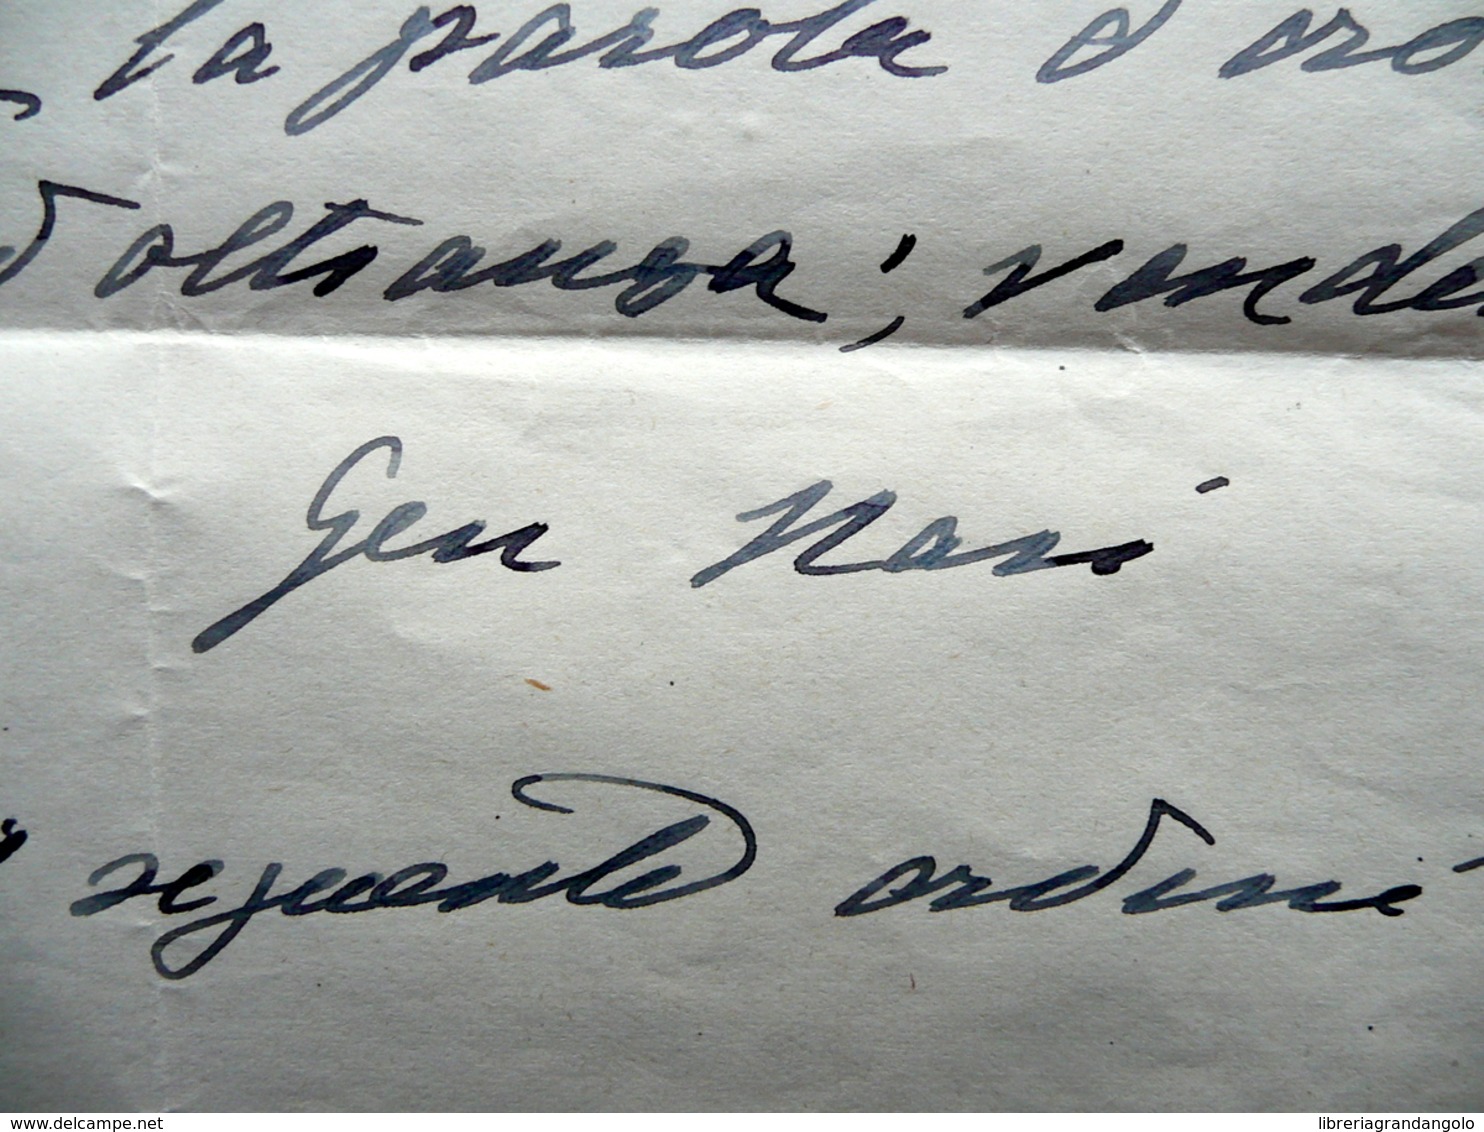 la parola d'ord
d oltranza; vende
Gen Nasi
seguente ordine
delcampe.net
libreriagrandangolo